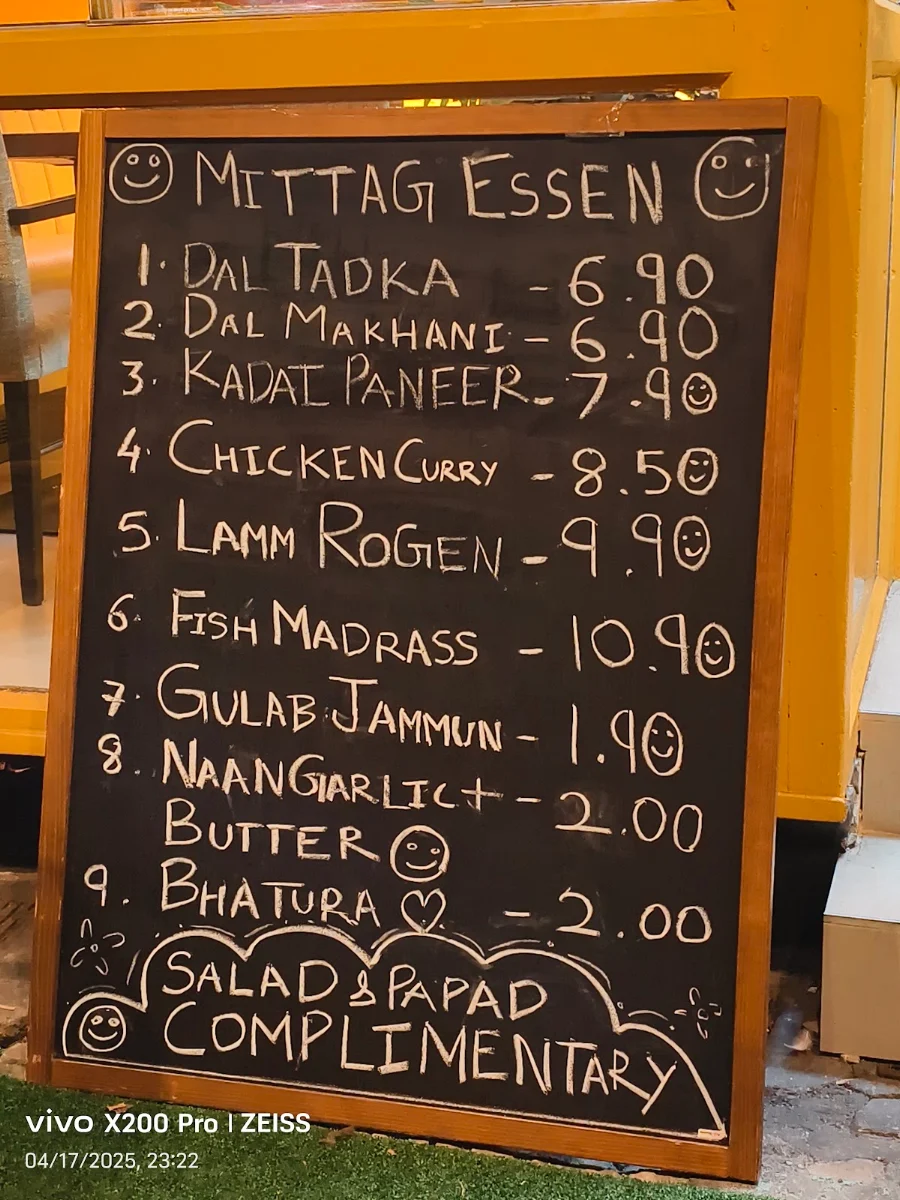 MITTAG ESSEN
1. DAL TADKA - 6.90
2. DAL MAKHANI - 6.90
3. KADAI PANEER - 7.90
4. CHICKEN CURRY - 8.50
5. LAMM ROGEN - 9.90
6. FISH MADRASS - 10.90
7. GULAB JAMMUN - 1.90
8. NAAN GARLIC + - 2.00
BUTTER
9. BHATURA - 2.00
SALAD & PAPAD
COMPLIMENTARY
vivo X200 Pro | ZEISS
04/17/2025, 23:22